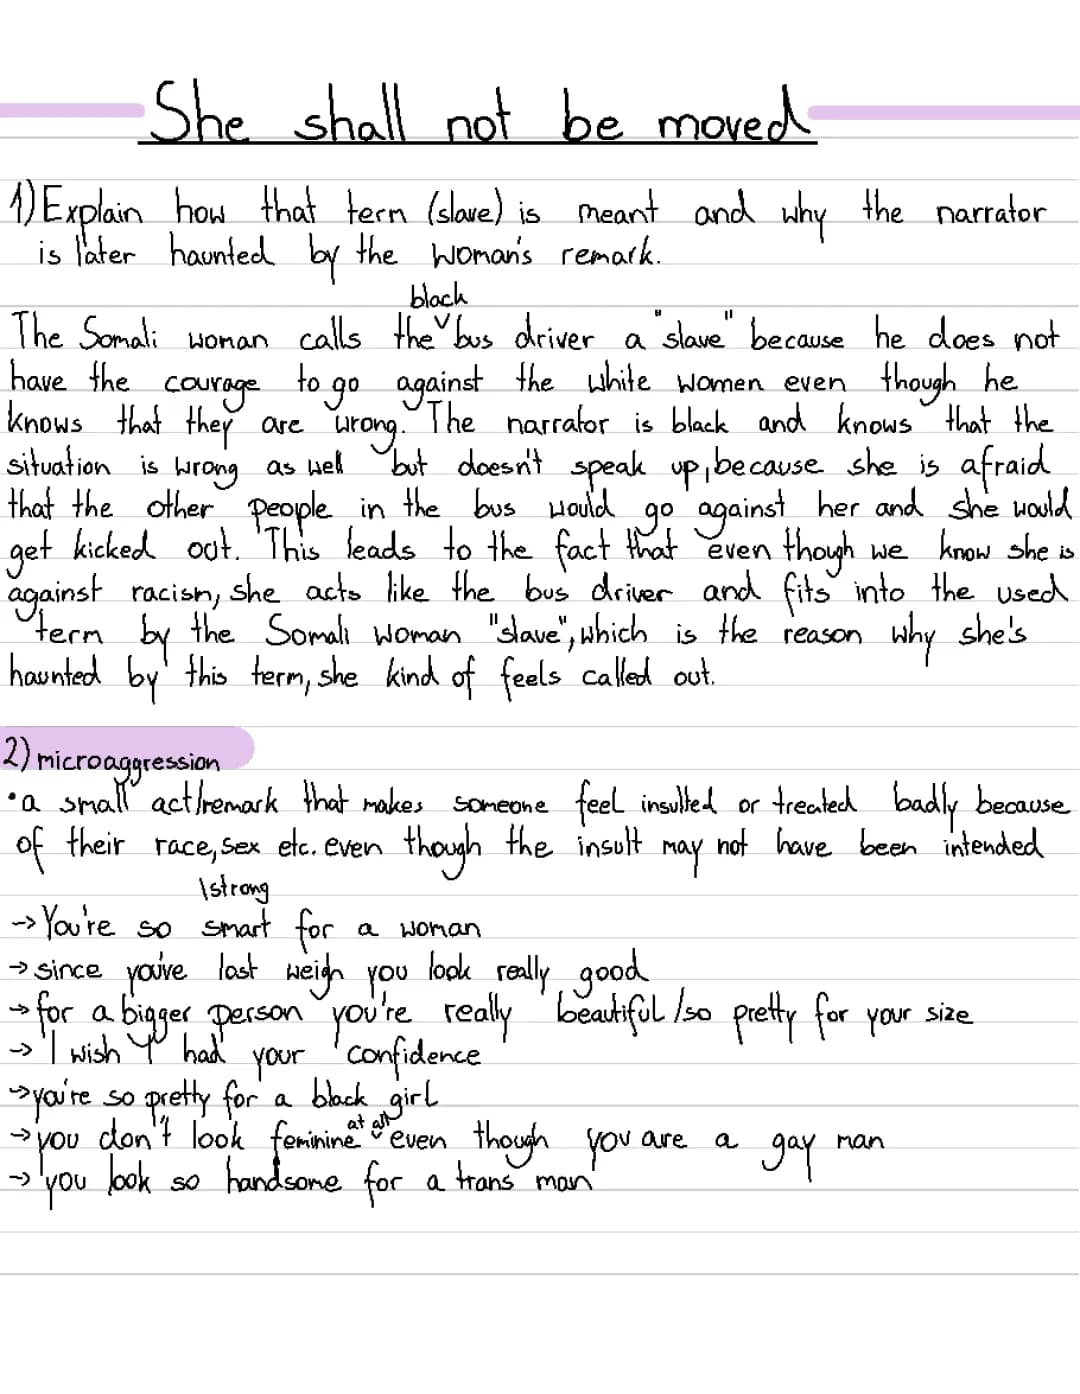 She shall not be moved
1) Explain how that term (slave) is meant and why the narrator
is later haunted by the woman's remark.
black
The Somali woman calls the bus driver a "slave" because he does not
have the courage to go against the white women even though he
knows that they are wrong. The narrator is black and knows that the
situation is wrong as well but doesn't speak up, because she is afraid
that the other people in the bus would go against her and she would
get kicked out. This leads to the fact that even though we know she is
against racism, she acts like the bus driver and fits into the used
term by the Somali woman "slave", which is the reason why she's
haunted by this term, she kind of feels called out.
2) microaggression
• a small act/remark that makes someone feel insulted or treated badly because
of their race, sex etc. even though the insult may not have been intended
\strong
→ You're so smart for a woman
→ since you've lost weigh you look really good
→ for a bigger person you're really beautiful /so pretty for your size
→ I wish I had your confidence
→ you're so pretty for a black girl
at all
→ you don't look feminine even though you are a gay man
→ you look so handsome for a trans man